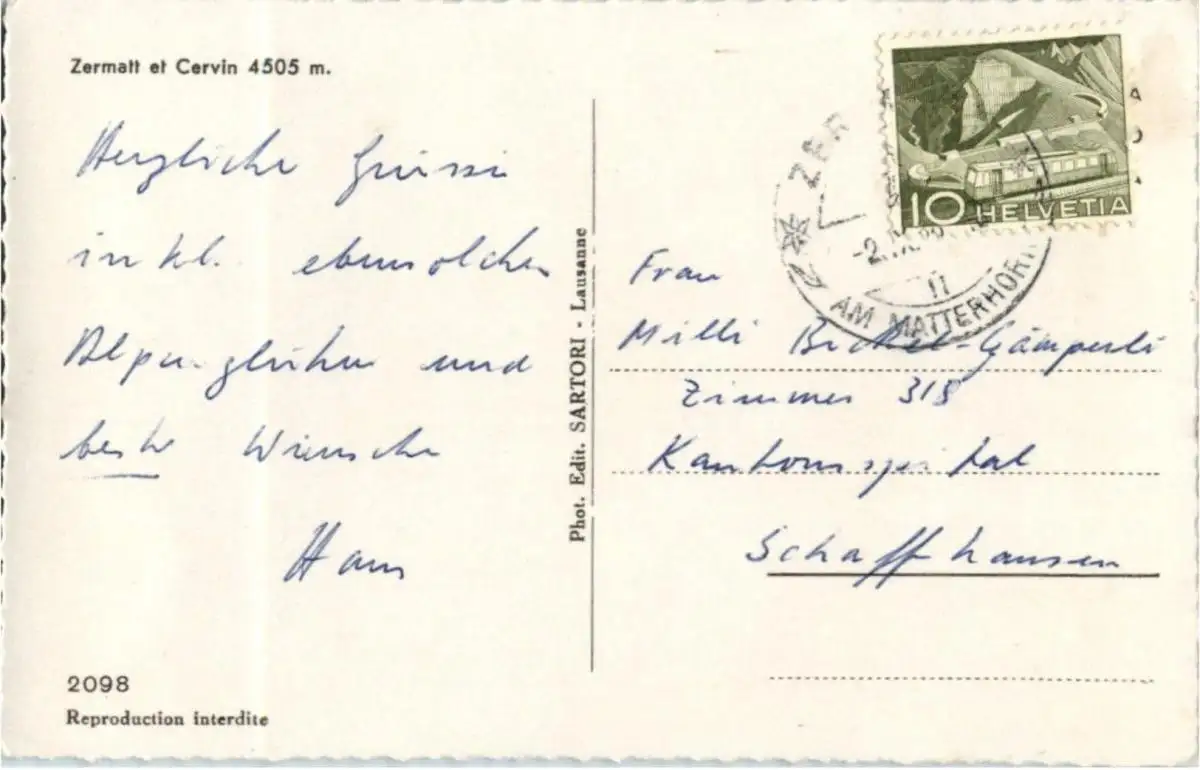 Zermatt et Cervin 4505 m.
Herzliche Grüsse
inkl. ebensolches
Alpenglühn und
beste Wünsche
Hans
2098
Reproduction interdite
Phot. Edit. SARTORI - Lausanne
10 HELVETIA
ZER
-2.
11
AM MATTERHORN
Frau
Milli Bickel-Gämperli
Zimmer 318
Kantonsspital
Schaffhausen